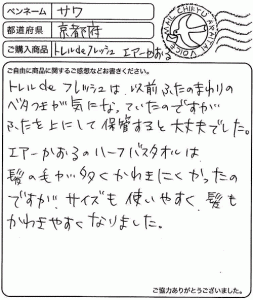 ペンネーム サワ
都道府県 京都府
ご購入商品 トレルdeフレッシュ エアーかおる
MAIL CHIKYU ARATAI VOICE
ご自由に商品に関するご感想などお書きください。
トレルdeフレッシュは、以前ふたのまわりの
ベタつきが気になっていたのですが
ふたを上にして保管すると大丈夫でした。
エアーかおるのハーフバスタオルは
髪の毛が多くかわきにくかったの
ですが サイズも使いやすく 髪も
かわきやすくなりました。
ご協力ありがとうございました。